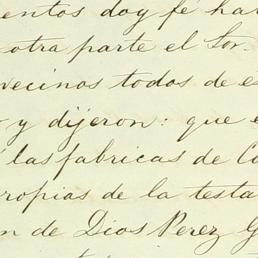 entos doy fé ha
otra parte el Sor.
vecinos todos de e
y dijeron: que e
las fabricas de Co
ropias de la testa
n de Dios Perez G